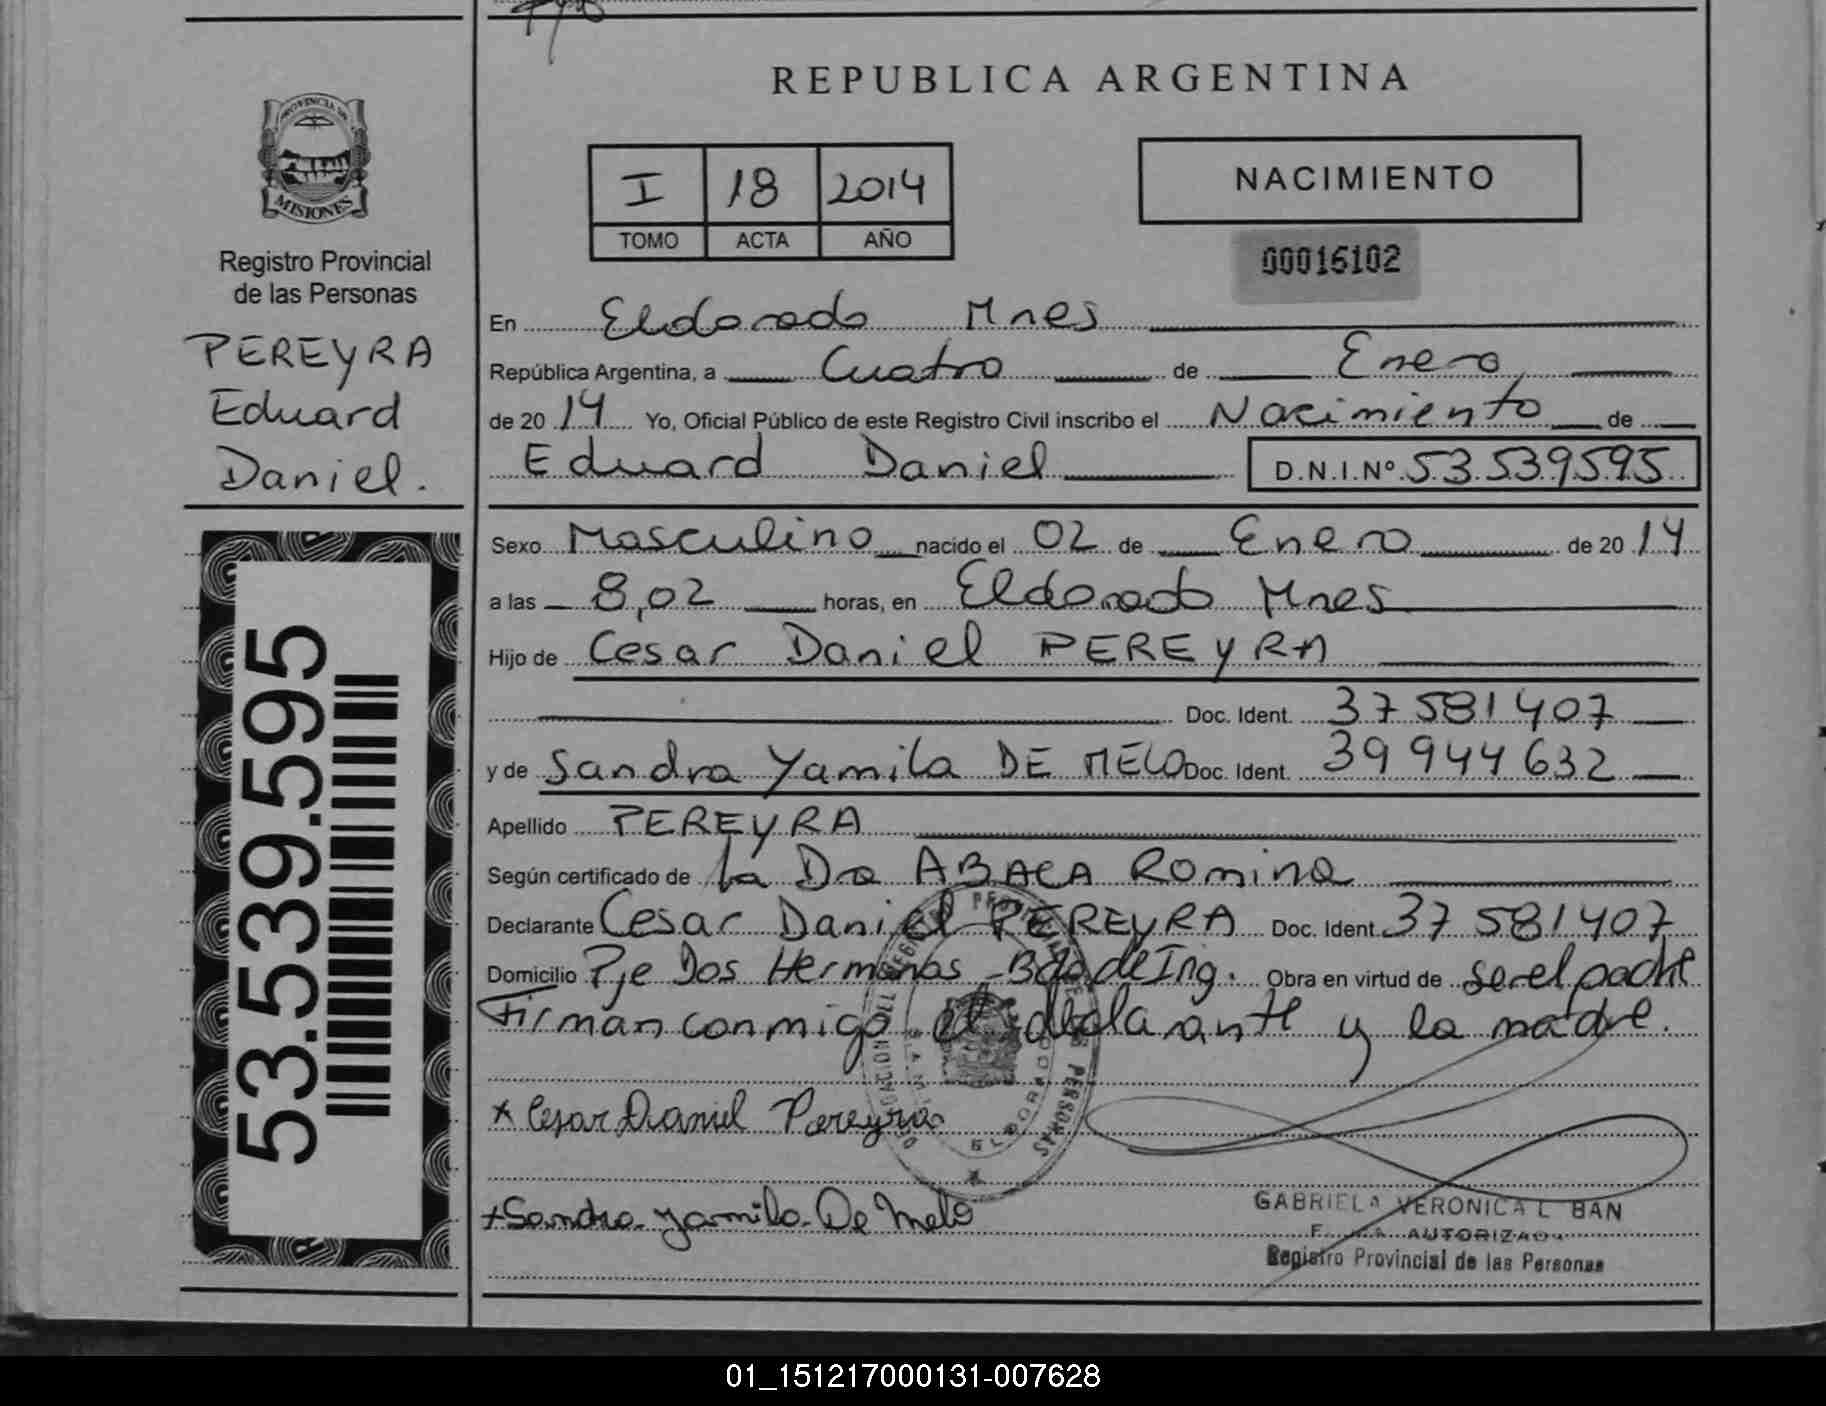 REPUBLICA ARGENTINA
PROVINCIA DE
MISIONES
Registro Provincial
de las Personas
PEREYRA
Eduard
Daniel.
53.539.595
I 18 2014
TOMO ACTA AÑO
NACIMIENTO
00016102
En Eldorado Mnes
República Argentina, a Cuatro de Enero
de 2014 Yo, Oficial Público de este Registro Civil inscribo el Nacimiento de
Eduard Daniel D.N.I.Nº 53.539595
Sexo Masculino nacido el 02 de Enero de 2014
a las 8,02 horas, en Eldorado Mnes
Hijo de Cesar Daniel PEREYRA
Doc. Ident. 37 581 407
y de Sandra Yamila DE MELO Doc. Ident. 39 944 632
Apellido PEREYRA
Según certificado de La Dra ABACA Romina
Declarante Cesar Daniel PEREYRA Doc. Ident. 37 581 407
Domicilio Pje Dos Hermanas - Bda de Ing. Obra en virtud de ser el padre
Firman conmigo el declarante y la madre.
x Cesar Daniel Pereyra
+ Sandra Yamila De Melo
ELDORADO
GABRIELA VERONICA
AUTORIZADA
Registro Provincial de las Personas
01_151217000131-007628